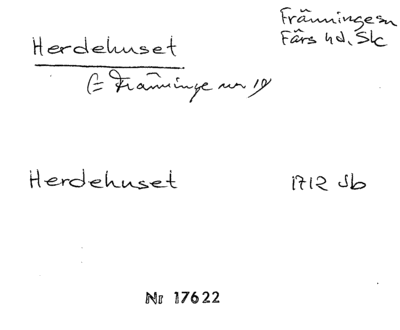 Herdehuset
Främninge sn
Färs hd, Sk
(= Främninge nr 19)
Herdehuset
1712 Jb
Nr 17622